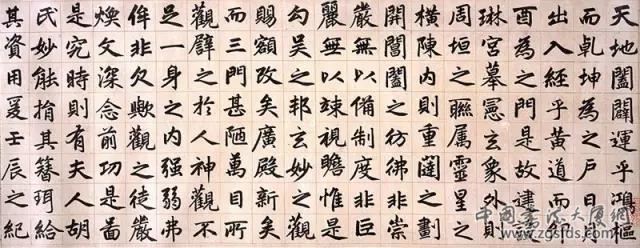 天地闔闢運乎鴻樞
而乾坤為之戶日月
出入經乎黃道而卯
酉為之門是故建設
琳宮摹憲玄象外則
周垣之聯屬靈星之
橫陳內則重闥之劃
開閶闔之彷彿非崇
嚴無以備制度非巨
麗無以竦視瞻惟是
勾吳之邦玄妙之觀
賜額改矣廣殿新矣
而三門甚陋萬目所
觀譬之於人神觀不
足一身之內强弱弗
侔非欠歟觀之徒嚴
煥文深念前功是圖
是究時則有夫人胡
氏妙能捐其簪珥給
其資用爰壬辰之紀
中国书法大厦网
www.zgsfds.com